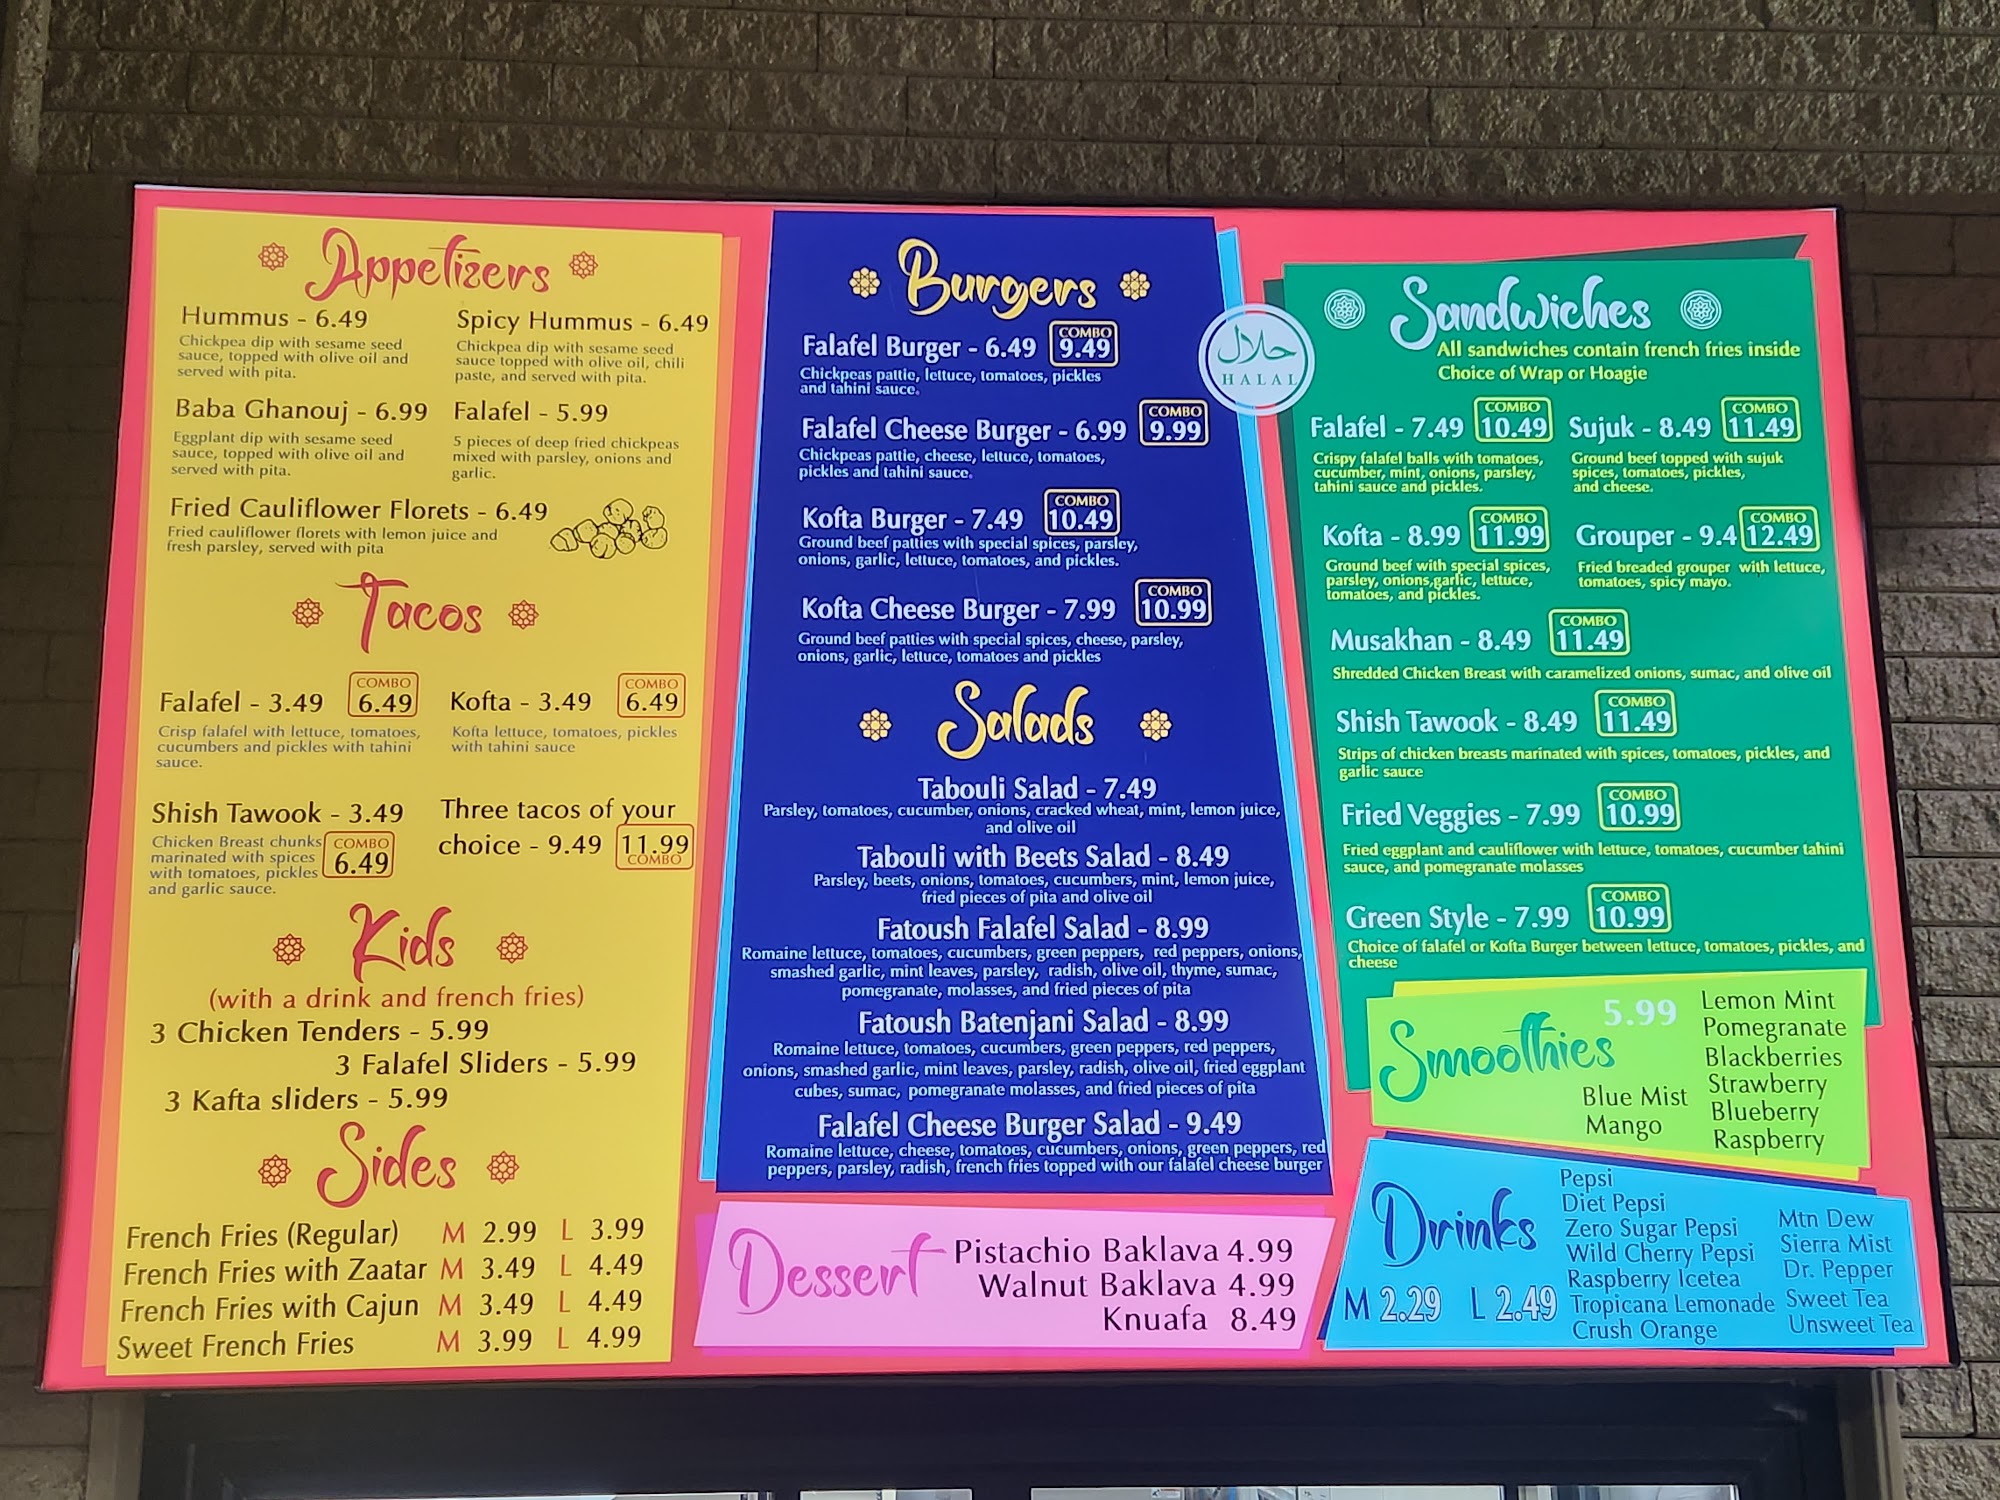 Appetizers
Hummus - 6.49
Chickpea dip with sesame seed
sauce, topped with olive oil and
served with pita.
Spicy Hummus - 6.49
Chickpea dip with sesame seed
sauce topped with olive oil, chili
paste, and served with pita.
Baba Ghanouj - 6.99
Eggplant dip with sesame seed
sauce, topped with olive oil and
served with pita.
Falafel - 5.99
5 pieces of deep fried chickpeas
mixed with parsley, onions and
garlic.
Fried Cauliflower Florets - 6.49
Fried cauliflower florets with lemon juice and
fresh parsley, served with pita
Tacos
Falafel - 3.49 COMBO 6.49
Crisp falafel with lettuce, tomatoes,
cucumbers and pickles with tahini
sauce.
Kofta - 3.49 COMBO 6.49
Kofta lettuce, tomatoes, pickles
with tahini sauce
Shish Tawook - 3.49
Chicken Breast chunks
marinated with spices
with tomatoes, pickles
and garlic sauce.
COMBO
6.49
Three tacos of your
choice - 9.49 11.99
COMBO
Kids
(with a drink and french fries)
3 Chicken Tenders - 5.99
3 Falafel Sliders - 5.99
3 Kafta sliders - 5.99
Sides
French Fries (Regular) M 2.99 L 3.99
French Fries with Zaatar M 3.49 L 4.49
French Fries with Cajun M 3.49 L 4.49
Sweet French Fries M 3.99 L 4.99
Burgers
Falafel Burger - 6.49 COMBO 9.49
Chickpeas pattie, lettuce, tomatoes, pickles
and tahini sauce.
Falafel Cheese Burger - 6.99 COMBO 9.99
Chickpeas pattie, cheese, lettuce, tomatoes,
pickles and tahini sauce.
Kofta Burger - 7.49 COMBO 10.49
Ground beef patties with special spices, parsley,
onions, garlic, lettuce, tomatoes, and pickles.
Kofta Cheese Burger - 7.99 COMBO 10.99
Ground beef patties with special spices, cheese, parsley,
onions, garlic, lettuce, tomatoes and pickles
Salads
Tabouli Salad - 7.49
Parsley, tomatoes, cucumber, onions, cracked wheat, mint, lemon juice,
and olive oil
Tabouli with Beets Salad - 8.49
Parsley, beets, onions, tomatoes, cucumbers, mint, lemon juice,
fried pieces of pita and olive oil
Fatoush Falafel Salad - 8.99
Romaine lettuce, tomatoes, cucumbers, green peppers, red peppers, onions,
smashed garlic, mint leaves, parsley, radish, olive oil, thyme, sumac,
pomegranate, molasses, and fried pieces of pita
Fatoush Batenjani Salad - 8.99
Romaine lettuce, tomatoes, cucumbers, green peppers, red peppers,
onions, smashed garlic, mint leaves, parsley, radish, olive oil, fried eggplant
cubes, sumac, pomegranate molasses, and fried pieces of pita
Falafel Cheese Burger Salad - 9.49
Romaine lettuce, cheese, tomatoes, cucumbers, onions, green peppers, red
peppers, parsley, radish, french fries topped with our falafel cheese burger
Dessert
Pistachio Baklava 4.99
Walnut Baklava 4.99
Knuafa 8.49
حلال
HALAL
Sandwiches
All sandwiches contain french fries inside
Choice of Wrap or Hoagie
Falafel - 7.49 COMBO 10.49
Crispy falafel balls with tomatoes,
cucumber, mint, onions, parsley,
tahini sauce and pickles.
Sujuk - 8.49 COMBO 11.49
Ground beef topped with sujuk
spices, tomatoes, pickles,
and cheese.
Kofta - 8.99 COMBO 11.99
Ground beef with special spices,
parsley, onions,garlic, lettuce,
tomatoes, and pickles.
Grouper - 9.4 COMBO 12.49
Fried breaded grouper with lettuce,
tomatoes, spicy mayo.
Musakhan - 8.49 COMBO 11.49
Shredded Chicken Breast with caramelized onions, sumac, and olive oil
Shish Tawook - 8.49 COMBO 11.49
Strips of chicken breasts marinated with spices, tomatoes, pickles, and
garlic sauce
Fried Veggies - 7.99 COMBO 10.99
Fried eggplant and cauliflower with lettuce, tomatoes, cucumber tahini
sauce, and pomegranate molasses
Green Style - 7.99 COMBO 10.99
Choice of falafel or Kofta Burger between lettuce, tomatoes, pickles, and
cheese
Smoothies 5.99
Blue Mist
Mango
Lemon Mint
Pomegranate
Blackberries
Strawberry
Blueberry
Raspberry
Drinks
M 2.29 L 2.49
Pepsi
Diet Pepsi
Zero Sugar Pepsi
Wild Cherry Pepsi
Raspberry Icetea
Tropicana Lemonade
Crush Orange
Mtn Dew
Sierra Mist
Dr. Pepper
Sweet Tea
Unsweet Tea